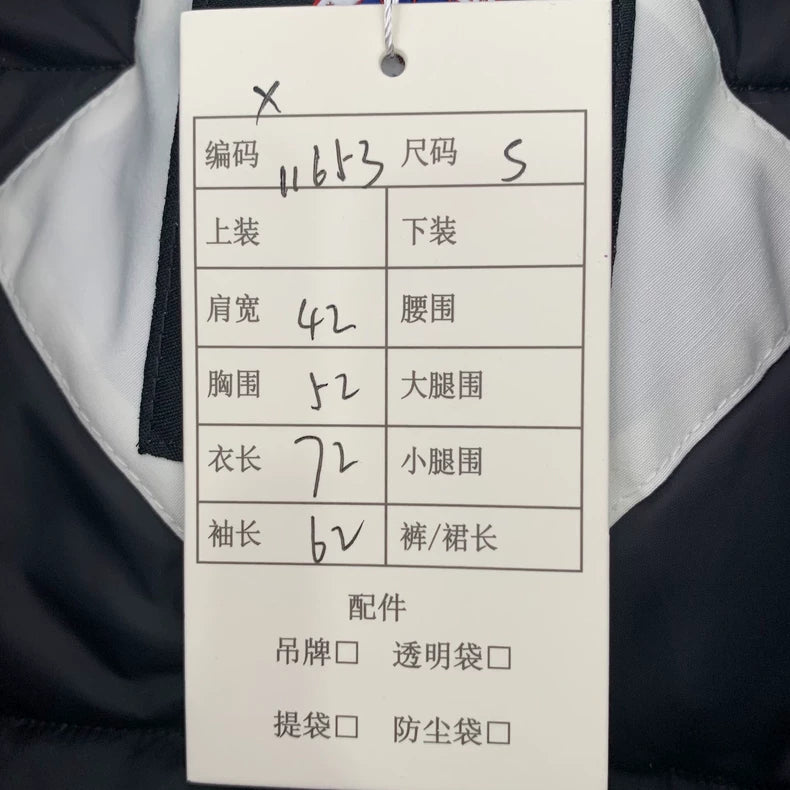 X
编码 11653 尺码 S
上装 下装
肩宽 42 腰围
胸围 52 大腿围
衣长 72 小腿围
袖长 62 裤/裙长
配件
吊牌□ 透明袋□
提袋□ 防尘袋□